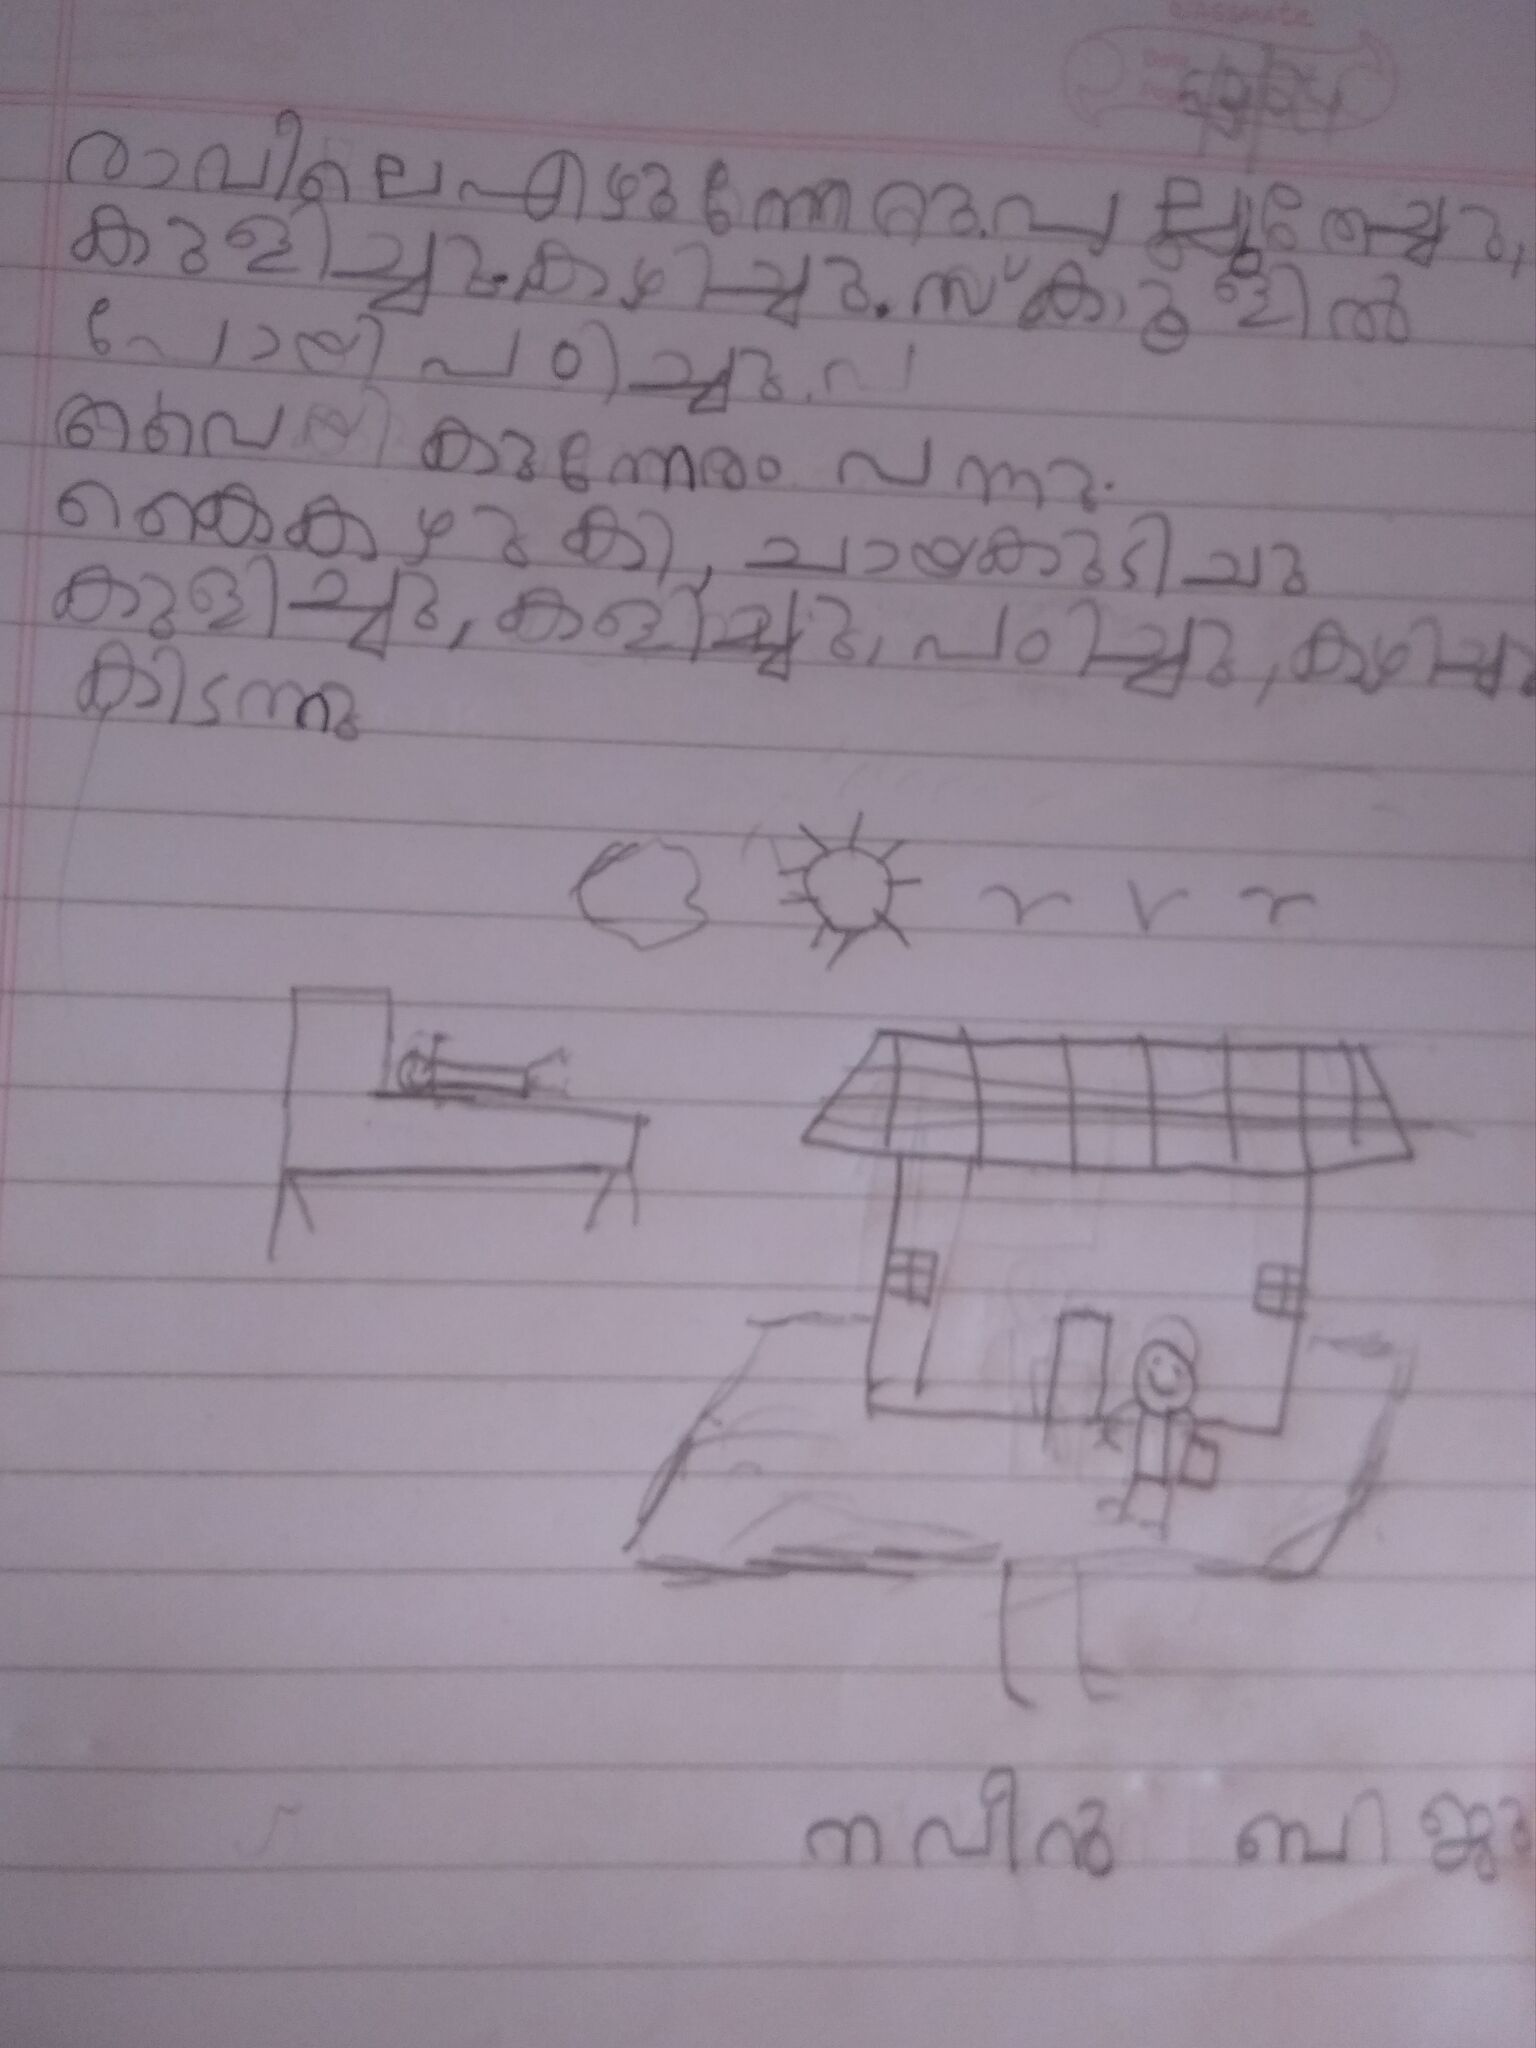 രാവിലെ എഴുന്നേറ്റു. പല്ലുതേച്ചു,
കുളിച്ചു. കഴിച്ചു. സ്കൂളിൽ
പോയി പഠിച്ചു.
വൈകുന്നേരം വന്നു.
കൈകഴുകി, ചായകുടിചു
കുളിച്ചു, കളിച്ചു, പഠിച്ചു, കഴിച്ചു
കിടന്നു
നവീൻ ബിജു